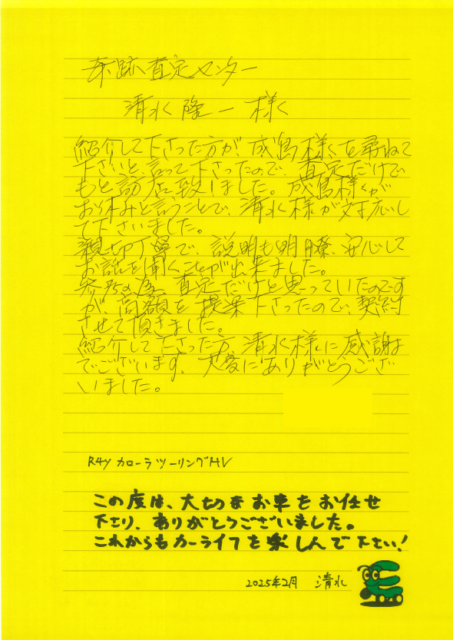 奈跡査定センター
清水隆一様く
紹介して下さった方が、成島様を尋ねて
下さいと言って下さったので、査定だけで
もと訪店致しました。成島様が
お休みと言うことで、清水様が対応し
て下さいました。
親切丁寧で、説明も明瞭、安心して
お話を聞くことが出来ました。
査定だけと思っていたのです
が、高額を提案下さったので、契約
させて頂きました。
紹介して下さった方、清水様に感謝
でございます。大変にありがとうござ
いました。
R4y カローラツーリングHV
この度は、大切なお車をお任せ
下さり、ありがとうございました。
これからもカーライフを楽しんで下さい!
2025年2月 清水